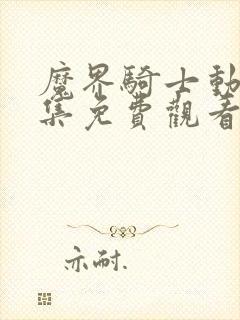 魔界騎士動
集免費觀看
亦耐.